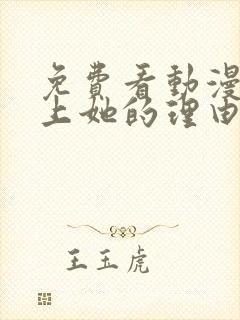 免費看動漫
上她的理由
王玉虎